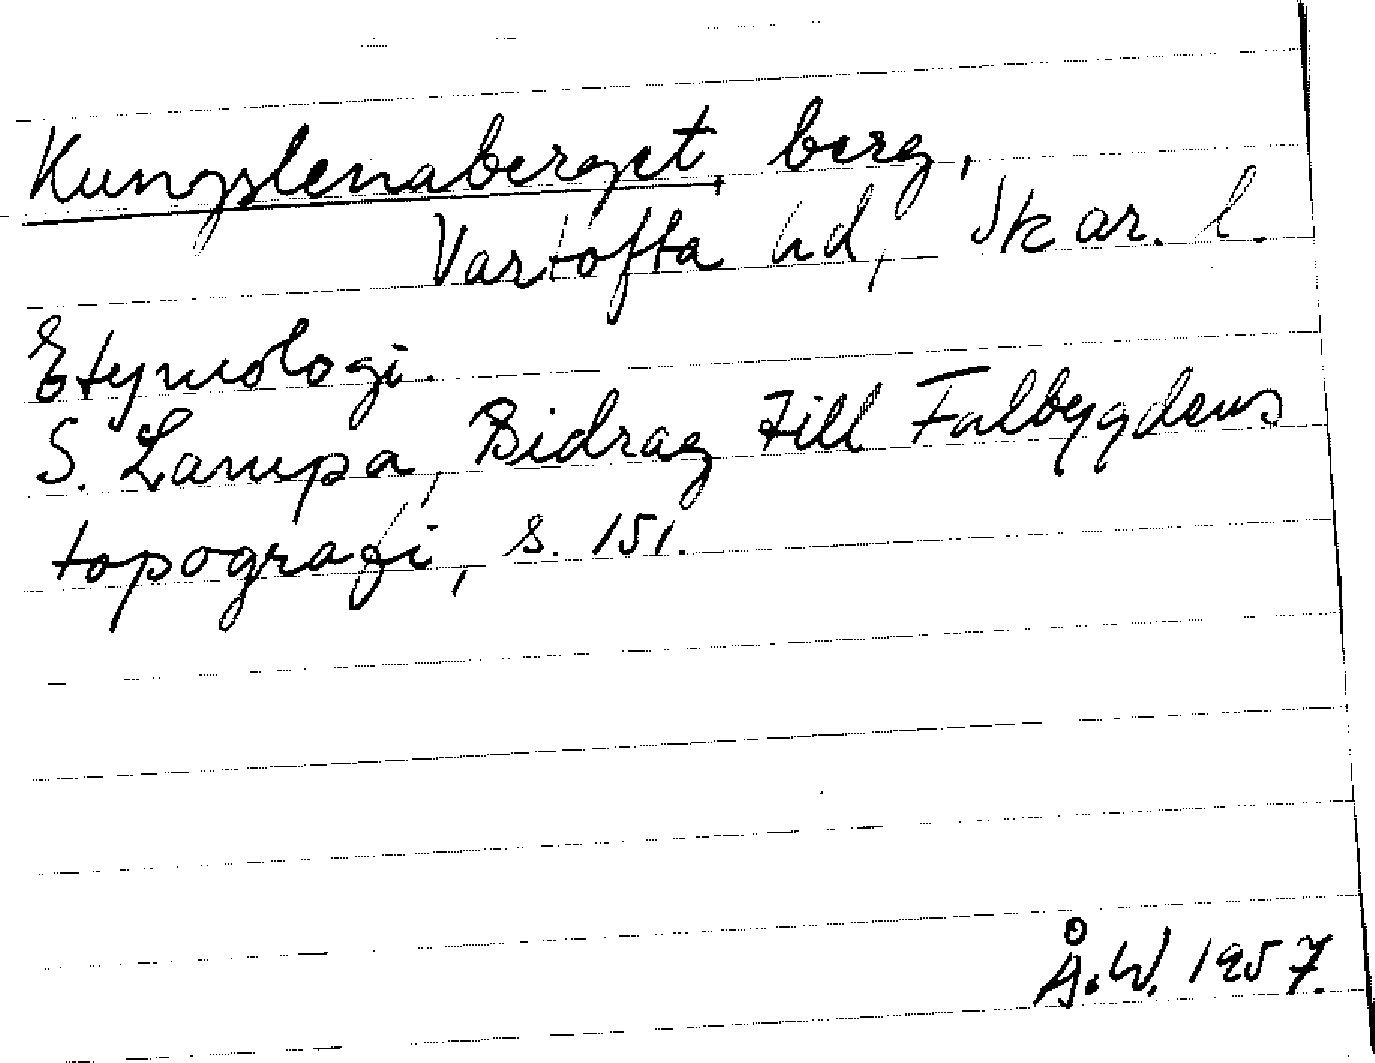 Kungslenaberget, berg,
Vartofta hd, Skar. l.
Etymologi.
S. Lampa, Bidrag till Falbygdens
topografi, s. 151.
Å.W. 1957.